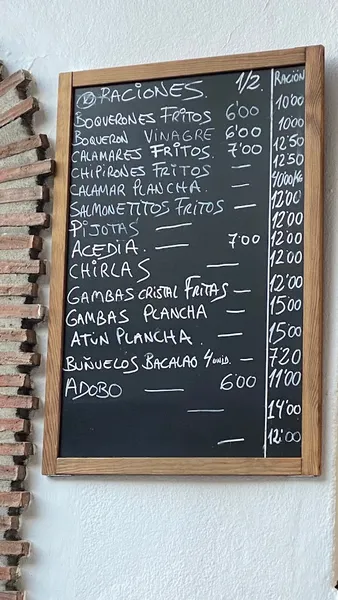 RACIONES. 1/2. RACIÓN
BOQUERONES FRITOS 6'00 10'00
BOQUERON VINAGRE 6'00 10'00
CALAMARES FRITOS. 7'00 12'50
CHIPIRONES FRITOS — 12'50
CALAMAR PLANCHA. — 40'00KG
SALMONETITOS FRITOS — 12'00
PIJOTAS — 12'00
ACEDIA. — 7'00 12'00
CHIRLAS — 12'00
GAMBAS CRISTAL FRITAS — 12'00
GAMBAS PLANCHA — 15'00
ATÚN PLANCHA. — 15'00
BUÑUELOS BACALAO 4 UNID. — 7'20
ADOBO — 6'00 11'00
— 14'00
— 12'00